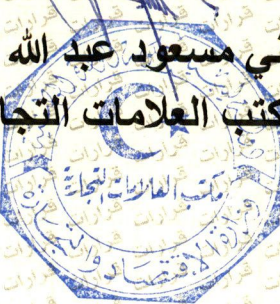 ي مسعود عبد الله
كتب العلامات التجا
مكتب العلامات التجارية
وزارة الاقتصاد والتجارة
قرارات